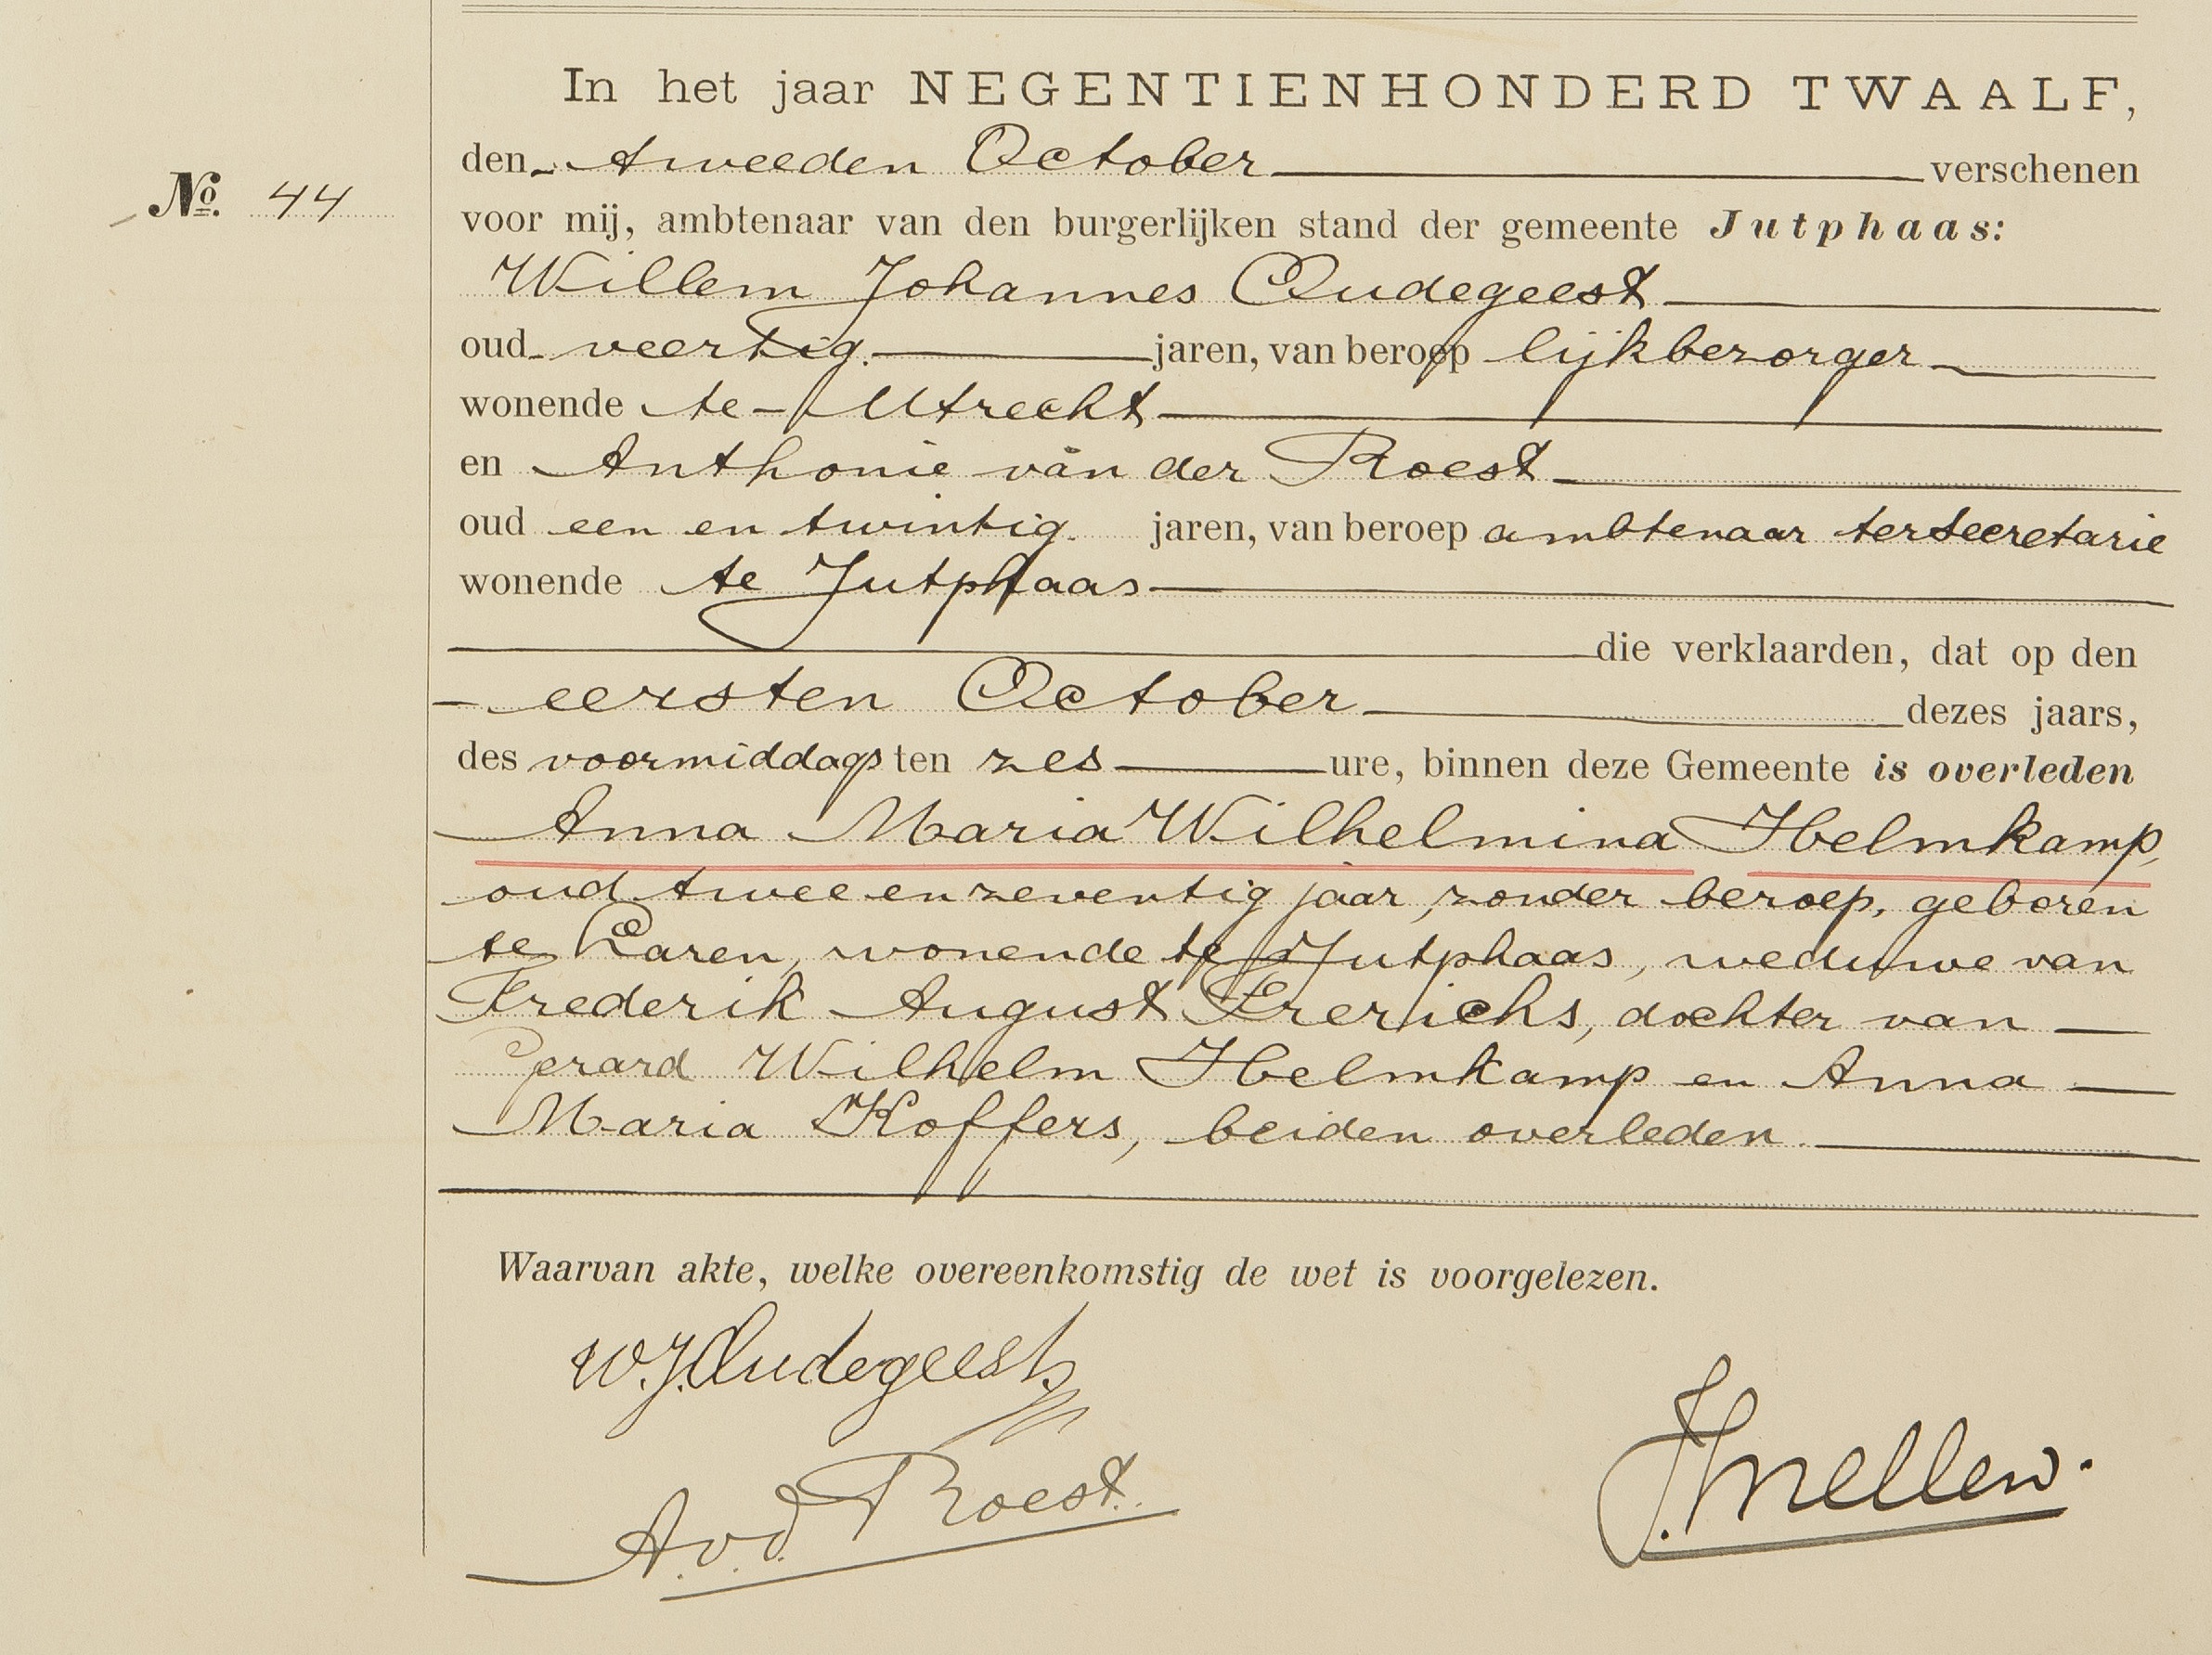 In het jaar NEGENTIENHONDERD TWAALF,
den tweeden October verschenen
No. 44
voor mij, ambtenaar van den burgerlijken stand der gemeente Jutphaas:
Willem Johannes Oudegeest
oud veertig jaren, van beroep lijkbezorger
wonende te Utrecht
en Anthonie van der Roest
oud een en twintig jaren, van beroep ambtenaar ter Secretarie
wonende te Jutphaas
die verklaarden, dat op den
eersten October dezes jaars,
des voormiddags ten zes ure, binnen deze Gemeente is overleden
Anna Maria Wilhelmina Helmkamp,
oud twee en zeventig jaar, zonder beroep, geboren
te Laren, wonende te Jutphaas, weduwe van
Frederik August Frerichs, dochter van
Gerard Wilhelm Helmkamp en Anna
Maria Koffers, beiden overleden.
Waarvan akte, welke overeenkomstig de wet is voorgelezen.
W.J. Oudegeest
A.v.d. Roest.